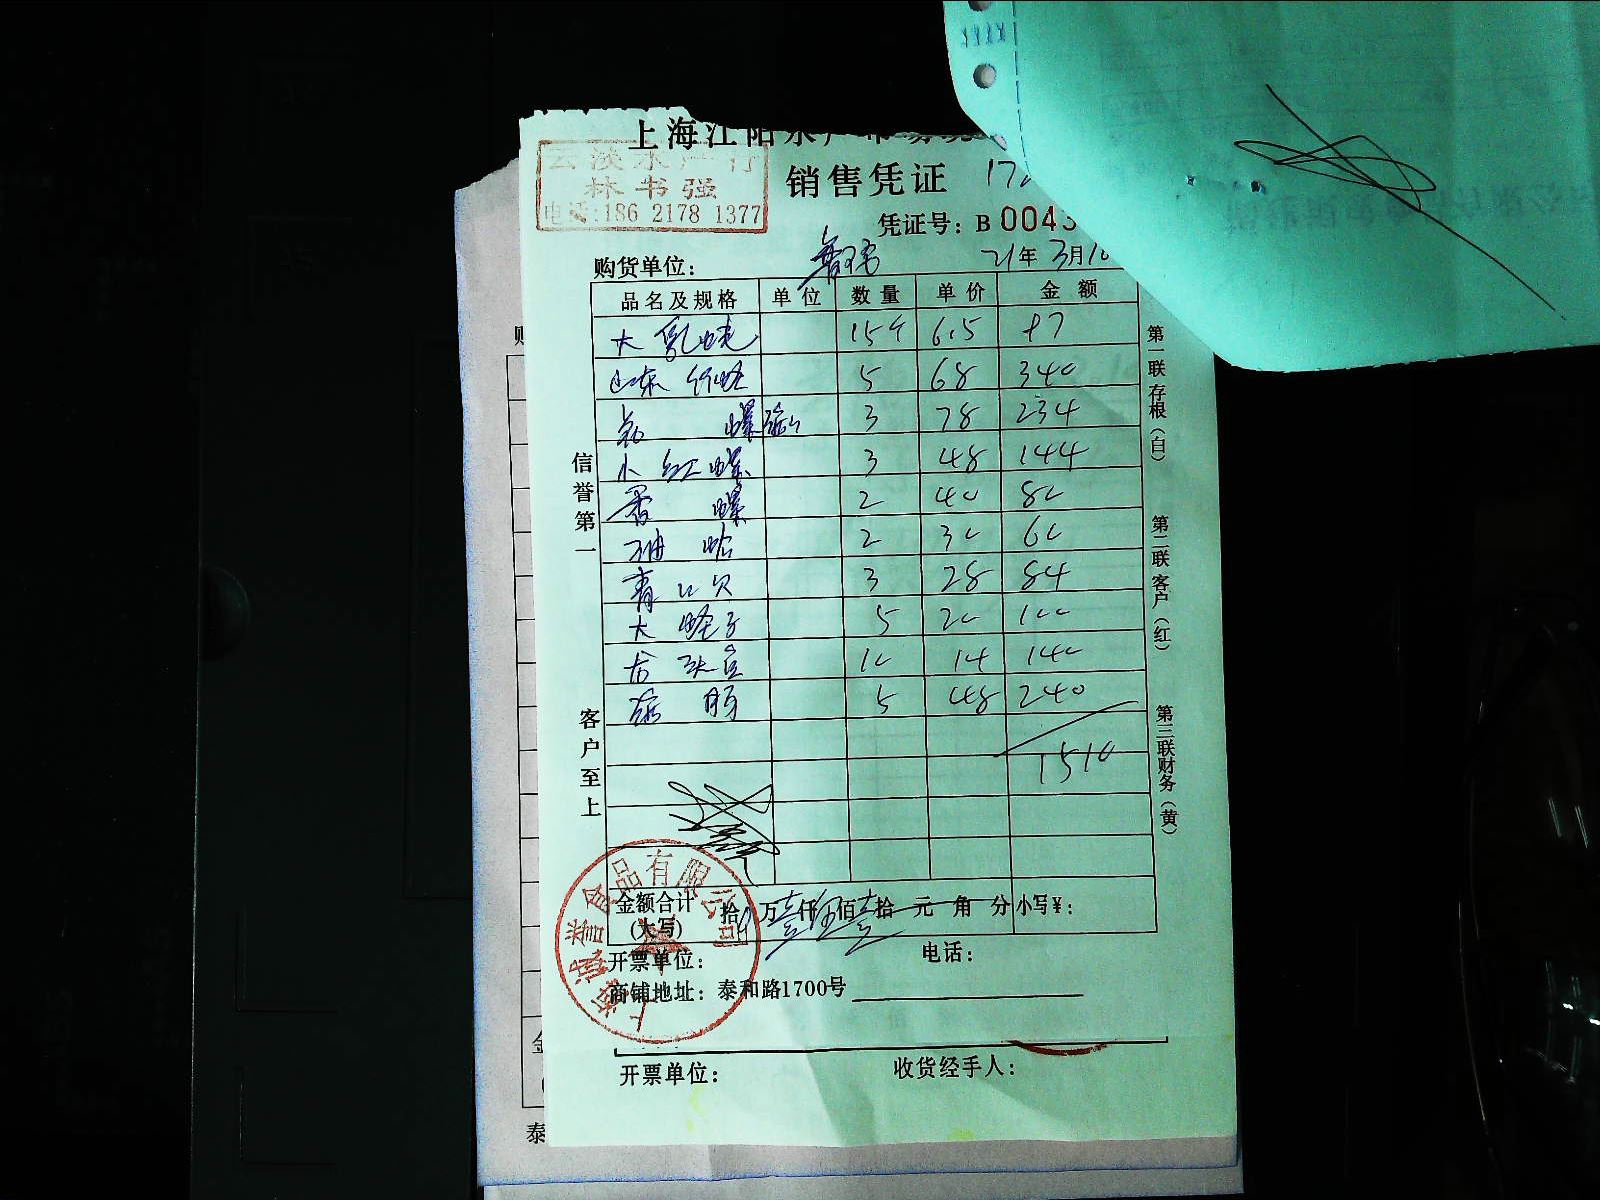 上海江阳水产市场
云波水产行
林书强
电话:186 2178 1377
销售凭证
凭证号: B 0043
购货单位:
21年 3月10
品名及规格 单位 数量 单价 金额
大 乳 15个 6.5 97
山东 竹蛏 5 68 340
螺 3 78 234
小红螺 3 48 144
香螺 2 40 80
油蛤 2 30 60
青口贝 3 28 84
大蛏子 5 20 100
龙头 10 14 140
5 48 240
1510
金额合计 (大写) 拾 万壹仟伍佰壹拾 元 角 分 小写¥:
开票单位: 电话:
商铺地址: 泰和路1700号
开票单位: 收货经手人:
信誉第一
客户至上
第一联 存根(白)
第二联 客户(红)
第三联 财务(黄)
食品有限公司